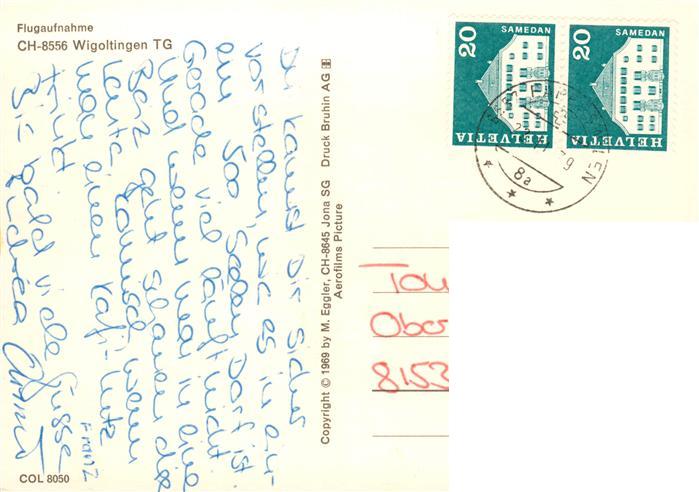 Flugaufnahme
CH-8556 Wigoltingen TG
Du kannst Dir sicher
vorstellen, wie es in ei-
nem 500 Seelen Dorf ist.
Gerade viel läuft nicht.
Und wenn man in eine
Beiz geht schauen die
Leute komisch wenn
man einen Kafi-Lutz
trinkt.
Bis bald viele Grüsse
COL 8050
Copyright © 1969 by M. Eggler, CH-8645 Jona SG Druck Bruhin AG
Aerofilms Picture
20
SAMEDAN
HELVETIA
20
SAMEDAN
HELVETIA
8a
Tou
Ober
8153